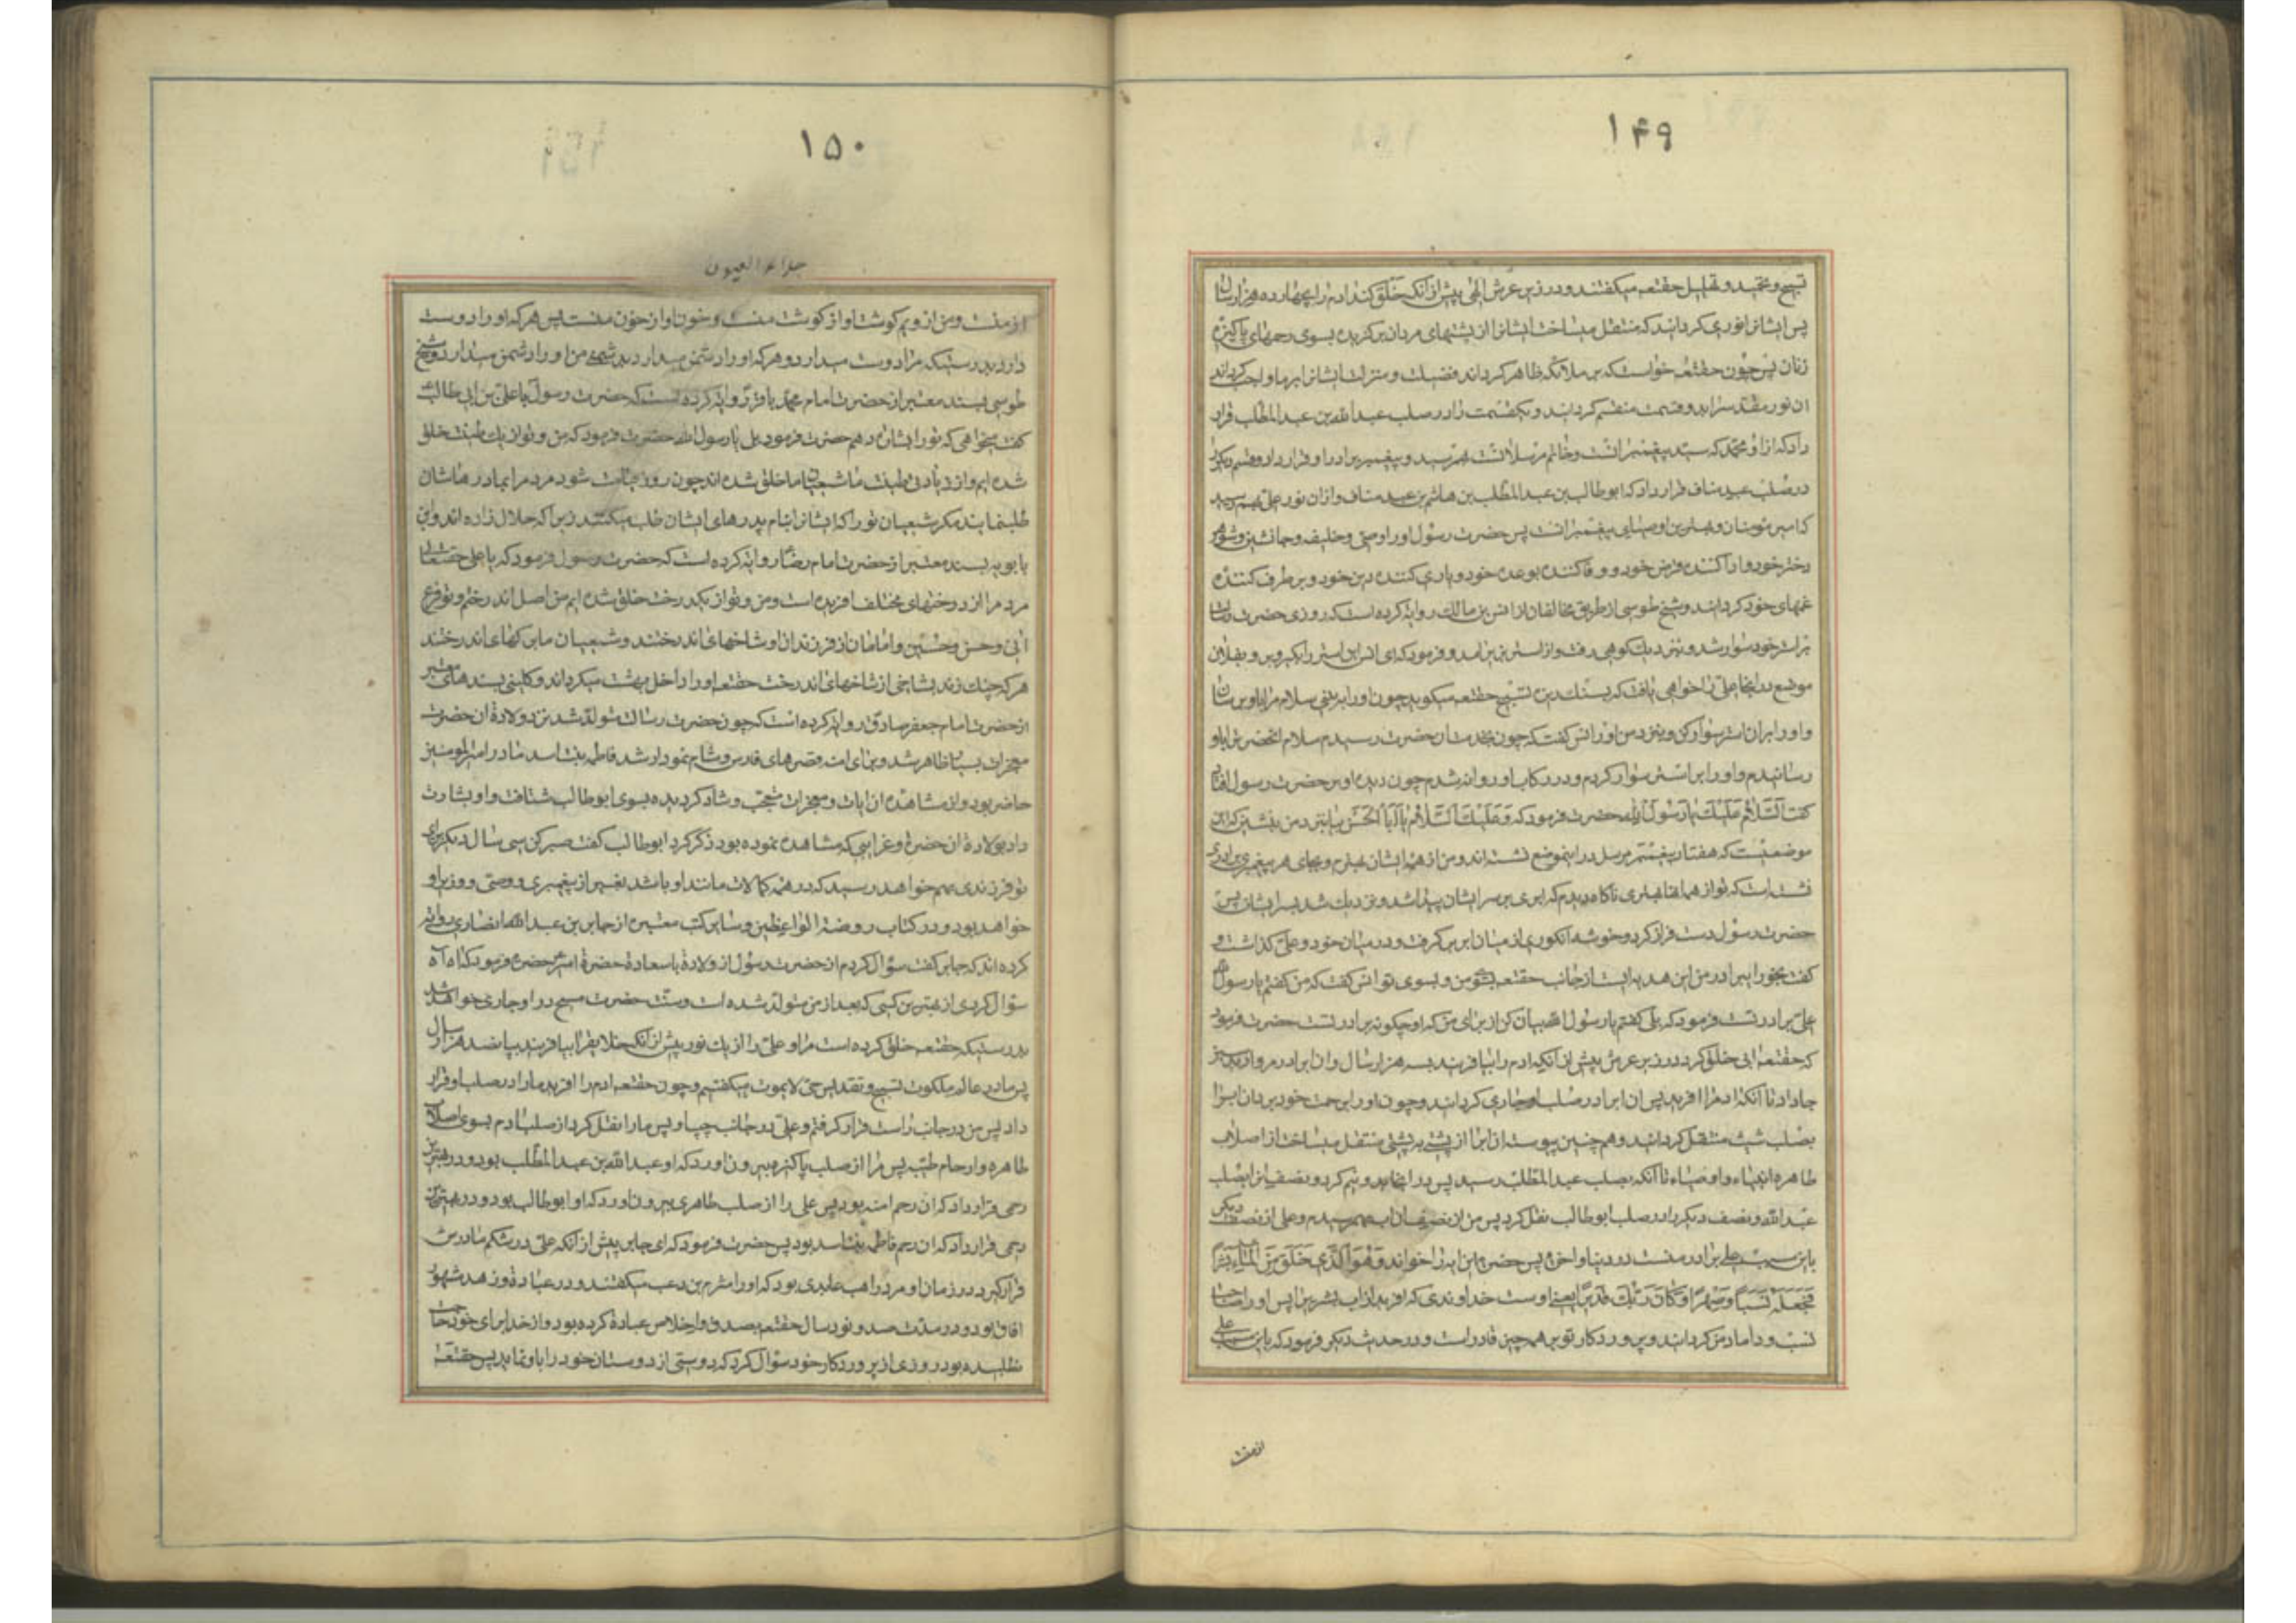 ۱۴۹
تسبیح و تحمید و تهلیل حقتعه میکفتند و در زیر عرش الهی پیش از آنکه خلق کند ادم را بچهارده هزار سال
پس ایشانرا نوری کردانید که منتقل میساخت ایشانرا از پشتهای مردان برکزیده بسوی رحمهای پاکیزه
زنان پس چون حقتعه خواست که بر ملائکه ظاهر کرداند فضیلت و منزلت ایشانرا بر ما واجب کرداند
ان نور مقدسرا بدو قسمت منقسم کردانید و یکقسمت را در صلب عبدالله بن عبدالمطلب قرار
داد که از او محمد که سید پیغمبرانست و خاتم مرسلانست بهم رسید و پیغمبریرا در او قرار داد و قسم دیکر
در صلب عبد مناف قرار داد که ابوطالب بن عبدالمطلب بن هاشم بن عبد مناف و ازان نور علی بهم رسید
که امیر مؤمنان و بهترین اوصیای پیغمبرانست پس حضرت رسول اورا وصی و خلیفه و جانشین و شوهر
دختر خود و ادا کننده قرض خود و وفا کننده بوعده خود و یاری کننده دین خود و برطرف کننده
غمهای خود کردانید و شیخ طوسی از طریق مخالفان از انس بن مالک روایة کرده است که روزی حضرت رسالت
بر استر خود سوار شد و بنزدیک کوهی رفت و از استر بزیر امد و فرمود که ای انس این استر را بکیر و برو بفلان
موضع در انجا علی را خواهی یافت که بسنک ریزه تسبیح حقتعه میکوید چون اورا ببینی سلام مرا باو برسان
و اورا بر ان استر سوار کن و بنزد من اور انس کفت که چون بخدمت ان حضرت رسیدم سلام انحضرترا باو
رسانیدم و اورا بر استر سوار کردم و در رکاب او روانه شدم چون دیده او بر حضرت رسول افتاد
کفت اَلسَّلامُ عَلَیْكَ یا رَسُولَ اللهِ حضرت فرمود که وَ عَلَیْكَ السَّلامُ یا اَبَا الْحَسَنِ بیا بنزد من بنشین که این
موضعیست که هفتاد پیغمبر مرسل در اینموضع نشسته اند و من از همه ایشان بهترم و بجای هر پیغمبری برادری
نشسته است که تو از همه انها بهتری ناکاه دیدم که ابری بر سر ایشان پیدا شد و نزدیک شد بسر ایشان پس
حضرت رسول دست فراز کرد و خوشه انکوری از میان ابر بر کرفت و در میان خود و علی کذاشت و
کفت بخور ایبرادر من این هدیه ایست از جانب حقتعه بسوی من و بسوی تو انس کفت که من کفتم یا رسول الله
علی برادر تست فرمود که بلی کفتم یا رسول الله بیان کن از برای من که او چکونه برادر تست حضرت فرمود
که حقتعه ابی خلق کرد در زیر عرش پیش از آنکه ادم را بیافریند بسه هزار سال و ان ابرا در مروارید سبز
جا داد تا آنکه ادمرا افرید پس ان ابرا در صلب او جاری کردانید و چون اورا برحمت خود برد ان ابرا
بصلب شیث منتقل کردانید و همچنین پیوسته ان ابرا از پشتی به پشتی منتقل میساخت از اصلاب
طاهره انبیاء و اوصیاء تا آنکه بصلب عبدالمطلب رسید پس در انجا بدو نیم کرد و نصفیرا بصلب
عبدالله و نصف دیکر را در صلب ابوطالب نقل کرد پس من از نصف ان اب بهم رسیدم و علی از نصف دیکر
باین سبب علی برادر منست در دنیا و اخرة پس حضرت این ایه را خواند وَ هُوَ الَّذی خَلَقَ مِنَ الْماءِ بَشَراً
فَجَعَلَهُ نَسَباً وَ صِهْراً وَ کانَ رَبُّكَ قَدیراً یعنی اوست خداوندی که افرید از اب بشریرا پس اورا صاحب
نسب و داماد من کردانید و پروردکار تو بر همه چیز قادر است و در حدیث دیکر فرمود که باین سبب علی
از منست
۱۵۰
جلاء العیون
از منست و من از ویم کوشت او از کوشت منست و خون او از خون منست پس هر که اورا دوست
دارد بدرستیکه مرا دوست میدارد و هر که اورا دشمن میدارد بدشمنی من اورا دشمن میدارد و شیخ
طوسی بسند معتبر از حضرت امام محمد باقر روایة کرده است که حضرت رسول با علی بن ابی طالب
کفت میخواهی که تورا بشارت دهم حضرت فرمود بلی یا رسول الله حضرت فرمود که من و تو از یك طینت خلق
شده ایم و از زیادتی طینت ما شیعیان ما خلق شده اند چون روز قیامت شود مردم را بمادرهاشان
طلبنمایند مکر شیعیان تورا که ایشانرا بنام پدرهای ایشان طلب میکنند زیرا که حلال زاده اند و ابن
بابویه بسند معتبر از حضرت امام رضا روایة کرده است که حضرت رسول فرمود که یا علی حقتعالی
مردم را از درختهای مختلف افریده است و من و تو از یکدرخت خلق شده ایم من اصل اندرختم و تو فرع
انی و حسن و حسین و امامان از فرزندان او شاخهای اندرختند و شیعیان ما برکهای اندرختند
هر که چنك زند بشاخی از شاخهای اندرخت حقتعه اورا داخل بهشت میکرداند و کلینی بسندهای معتبر
از حضرت امام جعفر صادق روایة کرده است که چون حضرت رسالت متولد شد نزد ولادة ان حضرت
معجزات بسیار ظاهر شد و برای امنه قصرهای فارس و شام نمودار شد فاطمه بنت اسد مادر امیرالمومنین
حاضر بود و از مشاهده ان ایات و معجزات متعجب و شاد کردیده بسوی ابوطالب شتافت و او بشارت
داد بولادة ان حضرة و غرایبی که مشاهده نموده بود ذکر کرد ابوطالب کفت صبر کن سی سال دیکر برای
تو فرزندی بهم خواهد رسید که در همه کمالات مانند او باشد بغیر از پیغمبری و وصی و وزیر او
خواهد بود و در کتاب روضة الواعظین و سایر کتب معتبره از جابر بن عبدالله انصاری روایة
کرده اند که جابر کفت سؤال کردم از حضرت رسول از ولادة باسعادة حضرة امیر حضرة فرمود که اه آه
سؤال کردی از بهترین کسی که بعد از من متولد شده است و سنت حضرت مسیح در او جاری خواهد شد
بدرستیکه حقتعه خلق کرده است مرا و علی را از یك نور پیش از آنکه خلایقرا بیافریند بپانصد هزار سال
پس ما در عالم ملکوت تسبیح و تقدیس حی لایموت میکفتیم و چون حقتعه ادم را افرید مارا در صلب او قرار
داد پس من در جانب راست قرار کرفتم و علی در جانب چپ او پس مارا نقل کرد از صلب ادم بسوی اصلاب
طاهره و ارحام طیبه پس مرا از صلب پاکیزه بیرون اورد که او عبدالله بن عبدالمطلب بود و در بهترین
رحمی قرار داد که ان رحم امنه بود پس علی را از صلب طاهری بیرون اورد که او ابوطالب بود و در بهترین
رحمی قرار داد که ان رحم فاطمه بنت اسد بود پس حضرت فرمود که ای جابر پیش از آنکه علی در شکم مادرش
قرار کیرد در زمان او مرد راهب عابدی بود که اورا مثرم بن دعیب میکفتند و در عبادة و زهد مشهور
افاق بود و در مدت صد و نود سال حقتعه بصدق و اخلاص عبادة کرده بود و از خدا برای خود حاجت
نطلبیده بود روزی از پروردکار خود سؤال کرد که دوستی از دوستان خود را باو نماید پس حقتعه